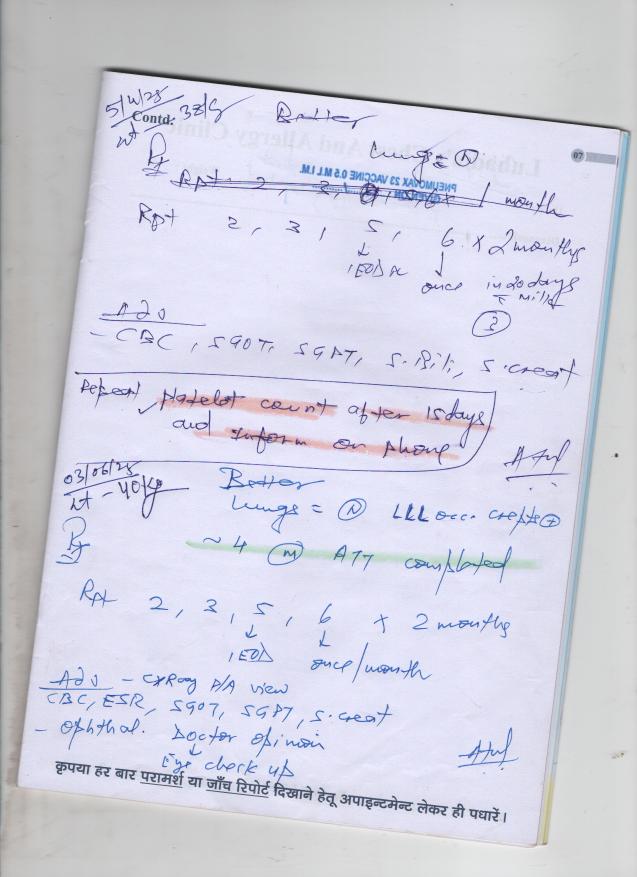 5/4/25
Contd.
wt 38kg Better
07
Lungs = N
Rx
PNEUMOVAX 23 VACCINE 0.5 M.L I.M.
Rpt 2, 3, 5, 6 x 1 month
Rpt 2, 3, 5, 6 x 2 months
↓ ↓
1EOD once in 20 days
milk
3
Adv
- CBC, SGOT, SGPT, S. Bili, S. creat
Repeat platelet count after 15 days
and inform on phone
Atul
03/06/25
wt - 40kg Better
Lungs = N LLL occ. crepts +
Rx
~ 4 m ATT completed
Rpt 2, 3, 5, 6 x 2 months
↓ ↓
1EOD once/month
Adv - CXRay P/A view
CBC, ESR, SGOT, SGPT, S. creat
- Ophthal. Doctor opinion
↓
Eye check up
Atul
कृपया हर बार परामर्श या जाँच रिपोर्ट दिखाने हेतू अपाइन्टमेन्ट लेकर ही पधारें।